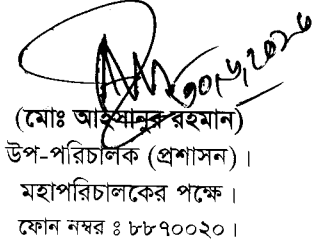 ৩০,৬,২০২০
(মোঃ আহসানুর রহমান)
উপ-পরিচালক (প্রশাসন)।
মহাপরিচালকের পক্ষে।
ফোন নম্বর ঃ ৮৮৭০০২০।